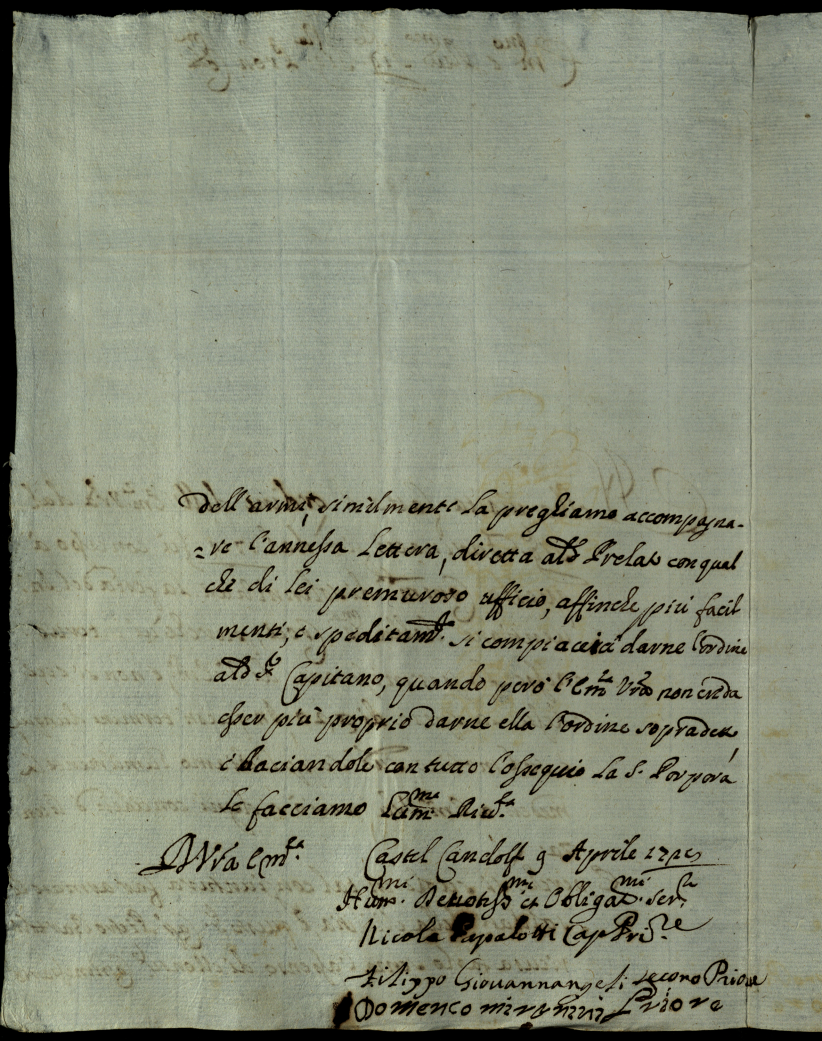 dell'armi, similmente la preghiamo accompagna-
=re l'annessa lettera, diretta al d.º Prelato con qual
che di lei premuroso ufficio, affinche più facil
mente, e speditam.te si compiaccia darne l'ordine
al d.º Capitano, quando però l'Em.za V'ra non creda
esser più proprio darne ella l'ordine sopradetto
e baciandole con tutto l'ossequio la S. Porpora
le facciamo hum.ma Riv.za
D V'ra Em.za
Castel Gandolfo 9 Aprile
Hum.mi Deuotiss.mi et Obligat.mi Ser.ri
Nicola Papalotti Cap Pri.re
Filippo Giovannangeli secono Priore
Domenco Priore